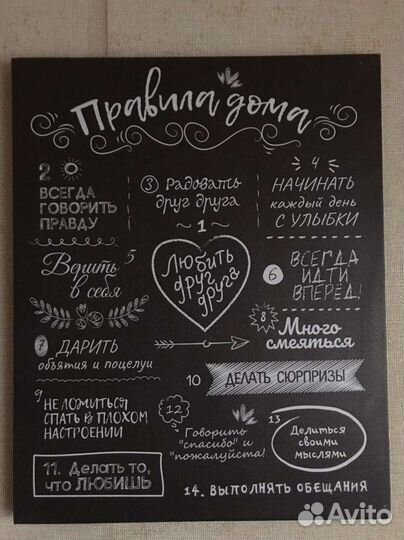 Правила дома
2
ВСЕГДА
ГОВОРИТЬ
ПРАВДУ
3 Радовать
друг друга
4
НАЧИНАТЬ
каждый день
С УЛЫБКИ
1
Любить
друг
друга
Верить 5
в себя
6 ВСЕГДА
ИДТИ
ВПЕРЁД!
7 ДАРИТЬ
объятия и поцелуи
8
Много
смеяться
9
НЕ ЛОЖИТЬСЯ
СПАТЬ В ПЛОХОМ
НАСТРОЕНИИ
10 ДЕЛАТЬ СЮРПРИЗЫ
11. Делать то,
что ЛЮБИШЬ
12
Говорить
"спасибо" и
"пожалуйста!
13
Делиться
своими
мыслями
14. ВЫПОЛНЯТЬ ОБЕЩАНИЯ
Avito